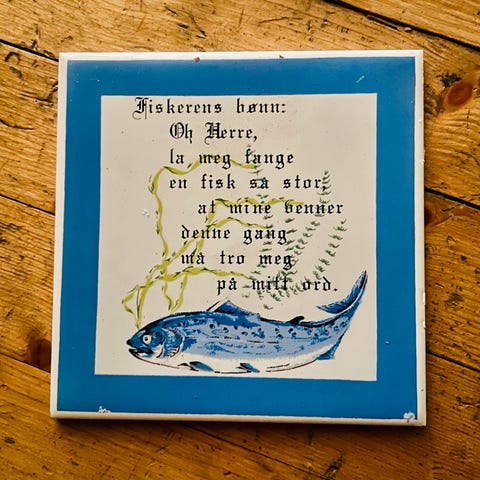 Fiskerens bønn:
Oh Herre,
la meg fange
en fisk så stor,
at mine venner
denne gang
må tro meg
på mitt ord.